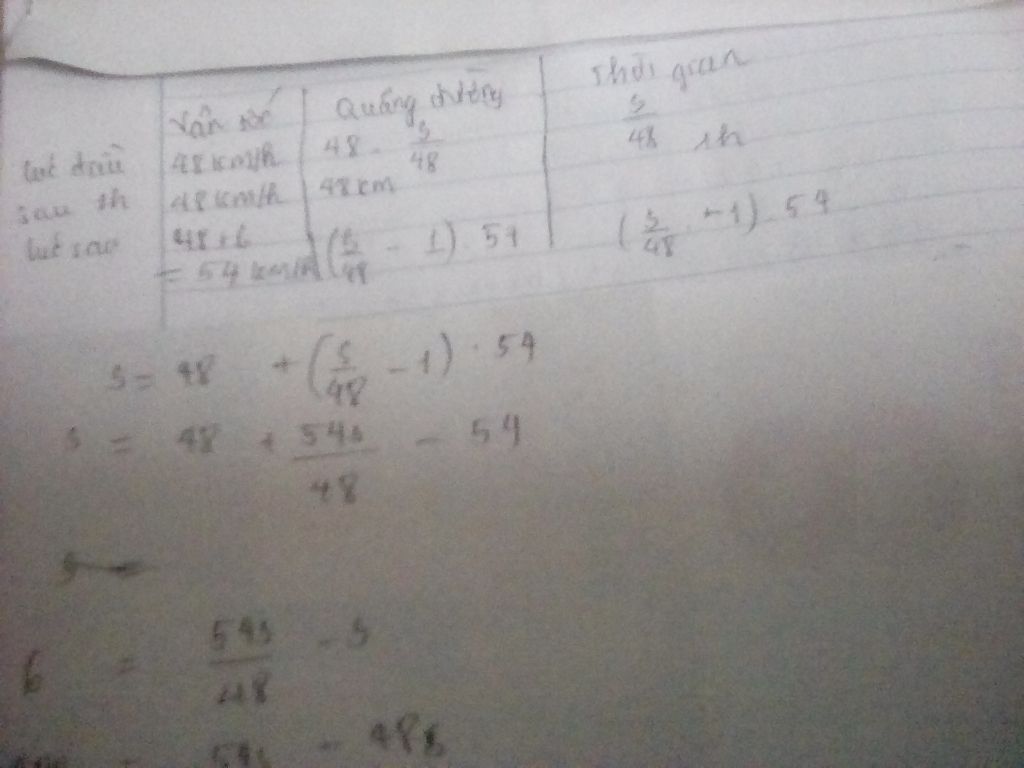 Vận tốc Quãng đường Thời gian
lúc đầu 48km/h 48 . s/48 s/48
sau 1h 48km/h 48km 1h
lúc sau 48+6 (s/48 - 1) . 54 (s/48 - 1) . 54
= 54 km/h
s = 48 + (s/48 - 1) . 54
s = 48 + 54s/48 - 54
6 = 54s/48 - s
54s - 48s